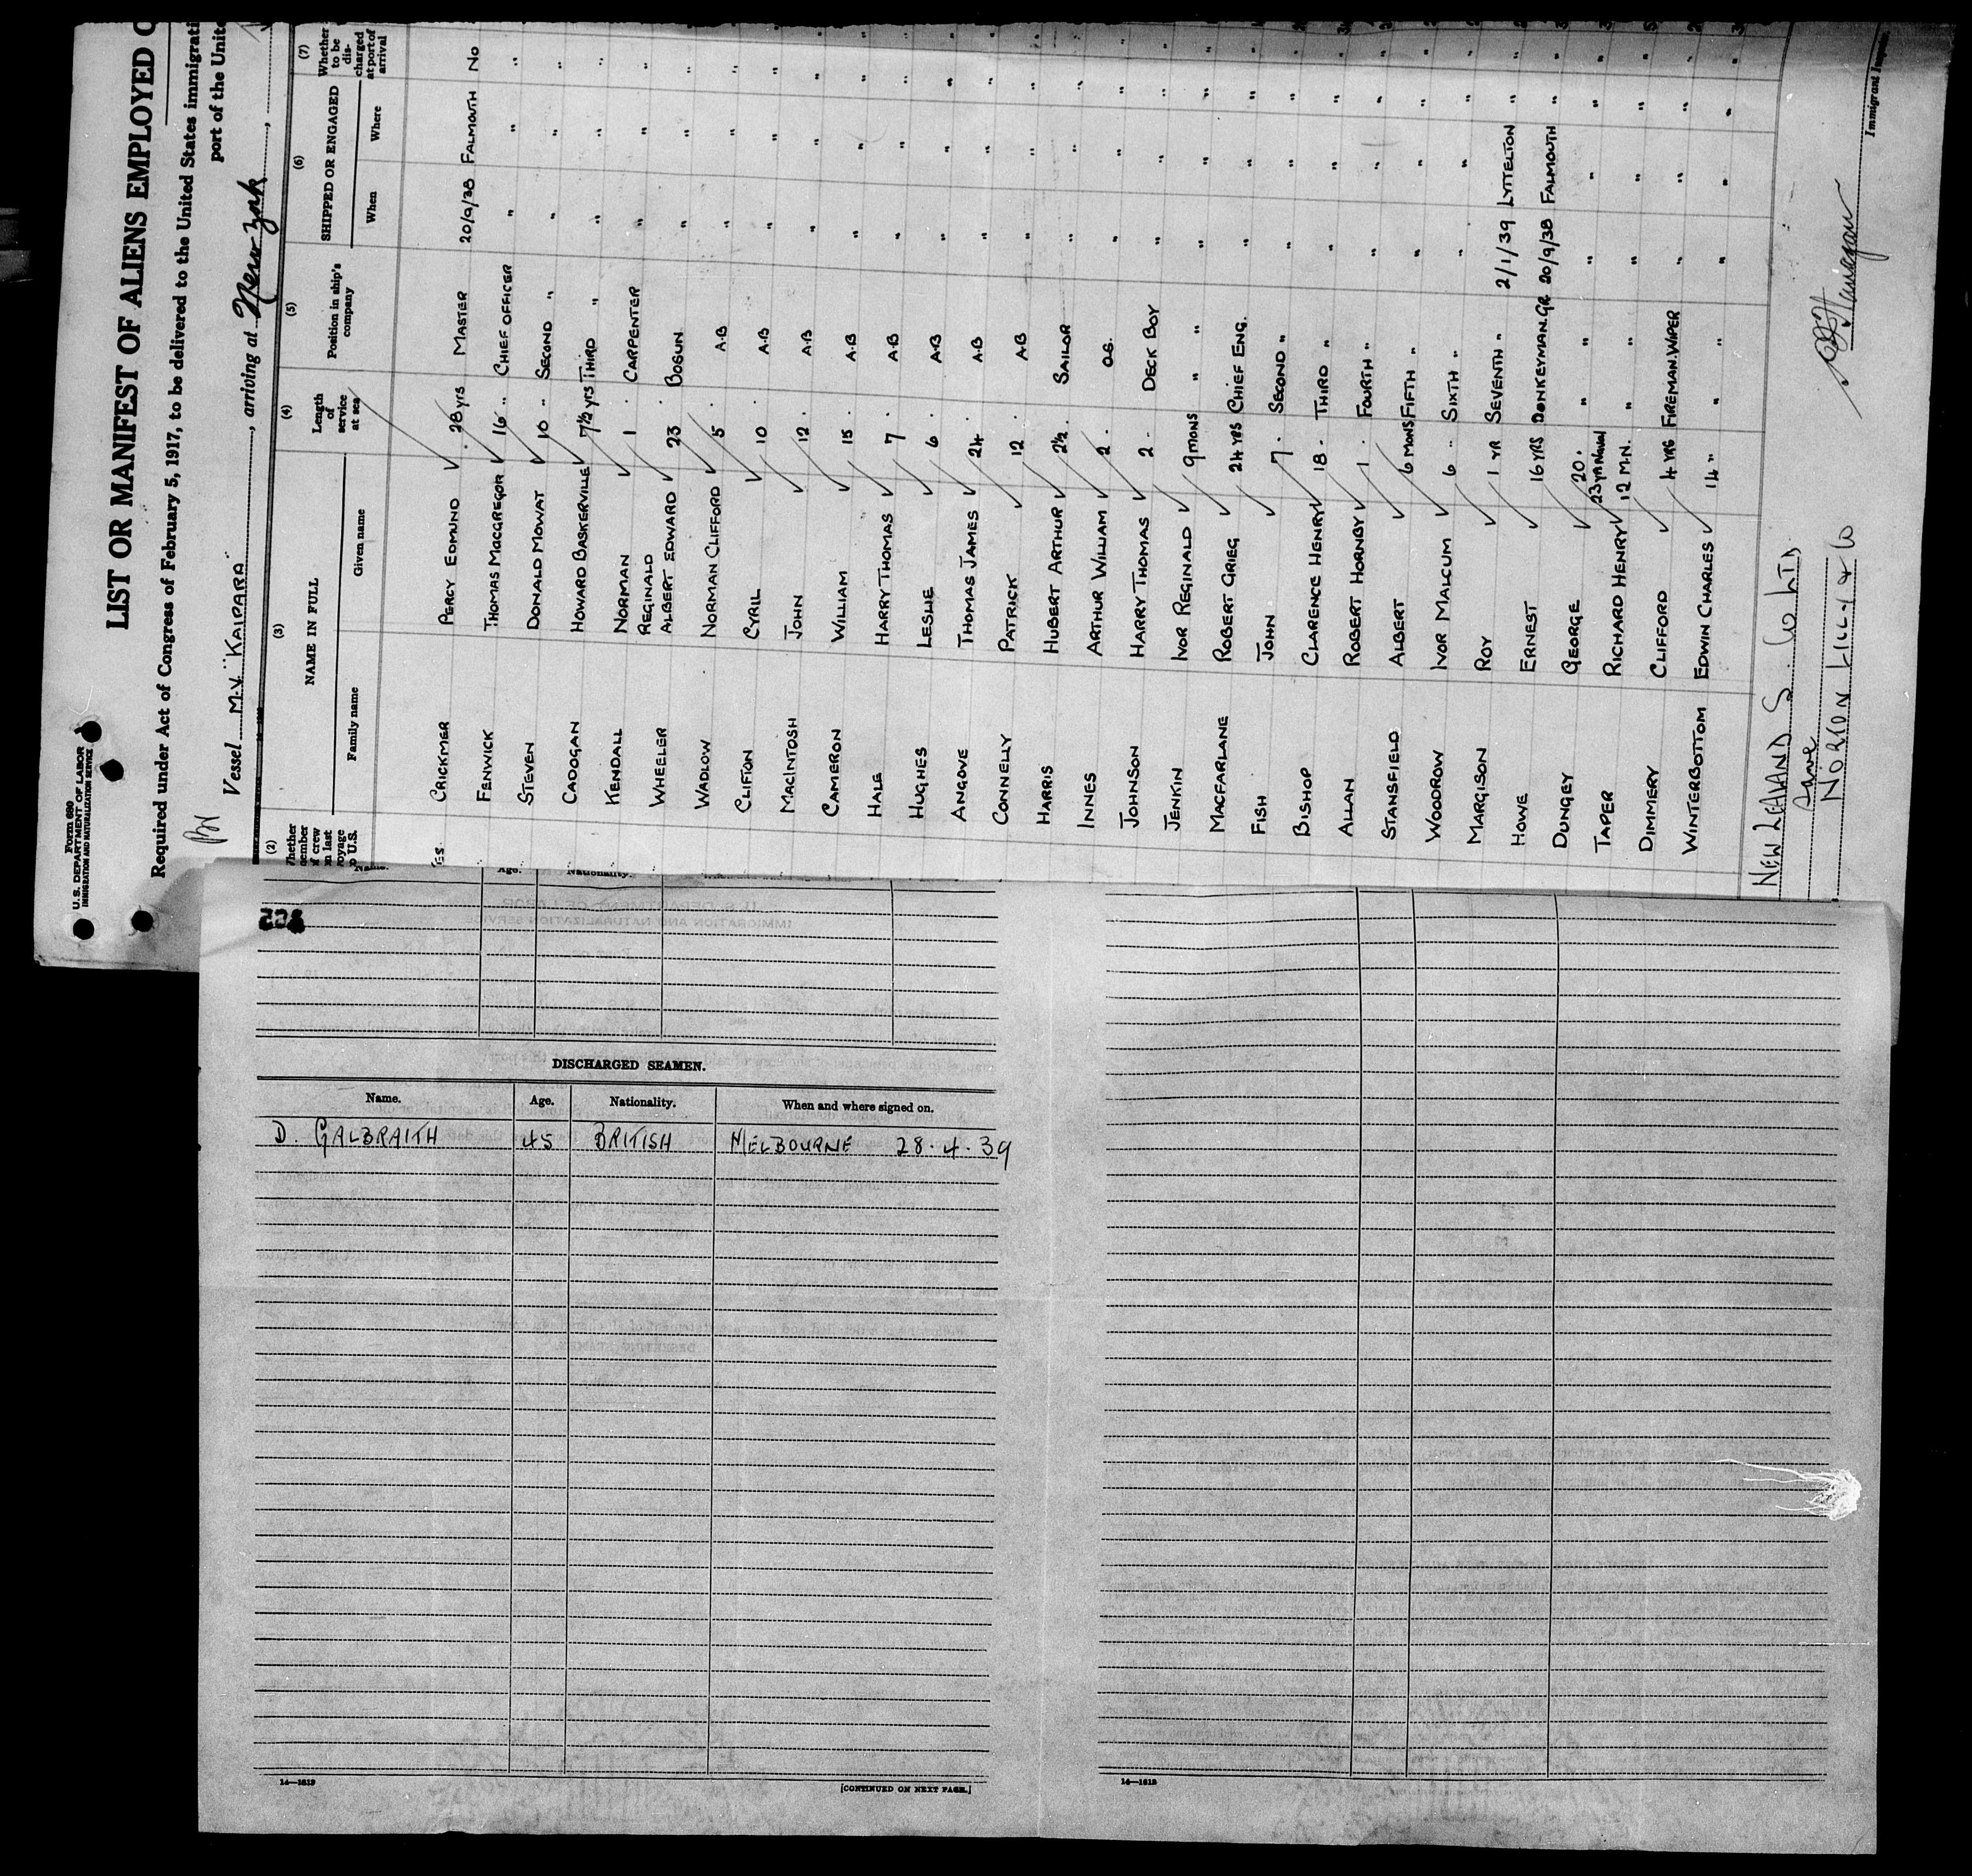 Form 680
U. S. DEPARTMENT OF LABOR
IMMIGRATION AND NATURALIZATION SERVICE
LIST OR MANIFEST OF ALIENS EMPLOYED
Required under Act of Congress of February 5, 1917, to be delivered to the United States
port of the
Vessel M.V. "KAIPARA", arriving at New York,
(2) (3) (4) (5) (6) (7)
NAME IN FULL Length of service at sea Position in ship's company SHIPPED OR ENGAGED Whether to be discharged at port of arrival
Family name Given name When Where
CRICKMER PERCY EDMUND 28 YRS MASTER 20/9/38 FALMOUTH NO
FENWICK THOMAS MACGREGOR 16 " CHIEF OFFICER " " "
STEVEN DONALD MOWAT 10 " SECOND " " " "
CADOGAN HOWARD BASKERVILLE 7½ YRS THIRD " " " "
KENDALL NORMAN REGINALD 1 . CARPENTER " " "
WHEELER ALBERT EDWARD 23 . BOSUN " " "
WADLOW NORMAN CLIFFORD 5 . A.B " " "
CLIFTON CYRIL 10 . A.B " " "
MACINTOSH JOHN 12 . A.B " " "
CAMERON WILLIAM 15 . A.B " " "
HALE HARRY THOMAS 7 . A.B " " "
HUGHES LESLIE 6 . A.B " " "
ANGOVE THOMAS JAMES 24 . A.B " " "
CONNELLY PATRICK 12 . A.B " " "
HARRIS HUBERT ARTHUR 2½ . SAILOR " " "
INNES ARTHUR WILLIAM 2 . O.S. " " "
JOHNSON HARRY THOMAS 2 - DECK BOY " " "
JENKIN IVOR REGINALD 9 MONS " " " " "
MACFARLANE ROBERT GRIEG 24 YRS CHIEF ENG. " " "
FISH JOHN 7 . SECOND " " " "
BISHOP CLARENCE HENRY 18 . THIRD " " " "
ALLAN ROBERT HORNBY 1 . FOURTH " " " "
STANSFIELD ALBERT 6 MONS FIFTH " " " "
WOODROW IVOR MALCUM 6 " SIXTH " " " "
MARGISON ROY 1 YR SEVENTH " 2/1/39 LYTTELTON "
HOWE ERNEST 16 YRS DONKEYMAN.GR 20/9/38 FALMOUTH "
DUNGEY GEORGE 20 . " " " "
TAPER RICHARD HENRY 23 YRS Naval 12 M.N. " " " "
DIMMERY CLIFFORD 4 YRS FIREMAN.WIPER " " "
WINTERBOTTOM EDWIN CHARLES 14 " " " " "
NEW ZEALAND S. Co LTD.
NORTON LILLY & Co
Immigrant
Age. Nationality.
DISCHARGED SEAMEN.
Name. Age. Nationality. When and where signed on.
D. GALBRAITH 45 BRITISH MELBOURNE 28.4.39
14—1613
[CONTINUED ON NEXT PAGE.]
14—1613